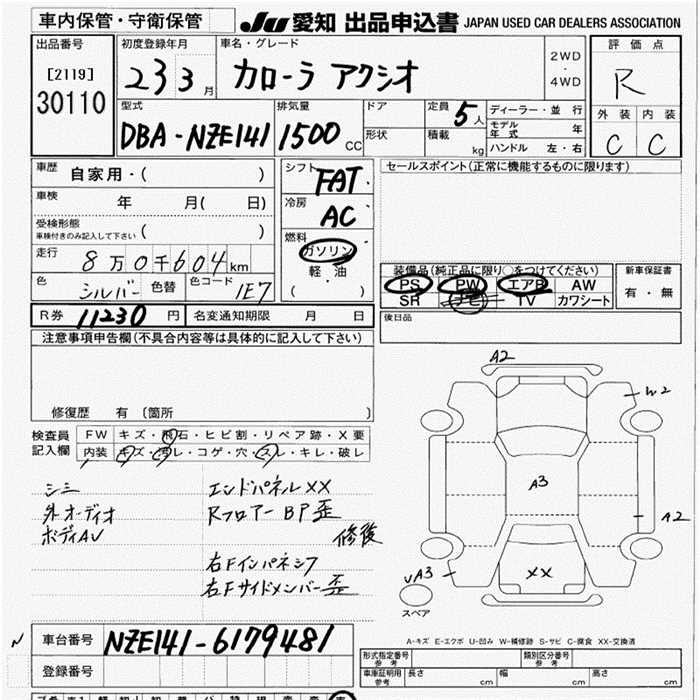 車内保管・守衛保管 JU 愛知 出品申込書 JAPAN USED CAR DEALERS ASSOCIATION
出品番号 [2119] 30110
初度登録年月 23 3月
車名・グレード カローラ アクシオ
2WD・4WD
評価点 R
外装 C 内装 C
型式 DBA-NZE141
排気量 1500 CC
ドア 形状
定員 5人
積載 kg
ディーラー・並行
モデル年式 年
ハンドル 左・右
車歴 自家用・( )
車検 年 月( 日)
受検形態 車検付きのみ記入して下さい ( )
走行 8万0千604km
色 シルバー 色替 色コード 1E7
シフト FAT
冷房 AC
燃料 ガソリン・軽油・( )
セールスポイント(正常に機能するものに限ります)
装備品(純正品に限り○をつけてください)
PS PW エアB AW
SR ナビ TV カワシート
新車保証書 有・無
後日品
R券 11230円 名変通知期限 月 日
注意事項申告欄(不具合内容等は具体的に記入して下さい)
修復歴 有 〔箇所 〕
検査員記入欄 FW キズ・飛石・ヒビ割・リペア跡・X要
内装 キズ・汚レ・コゲ・穴・スレ・キレ・破レ
シミ
外オーディオ
ボディAV
エンドパネルXX
Rフロアー BP歪
修後
右Fインパネシワ
右Fサイドメンバー歪
A2
W2
A3
A2
XX
UA3
スペア
A-キズ E-エクボ U-凹み W-補修跡 S-サビ C-腐食 XX-交換済
車台番号 NZE141-6179481
登録番号
形式指定番号 参考
類別区分番号 参考
車庫証明用 参考 長さ cm 幅 cm 高さ cm